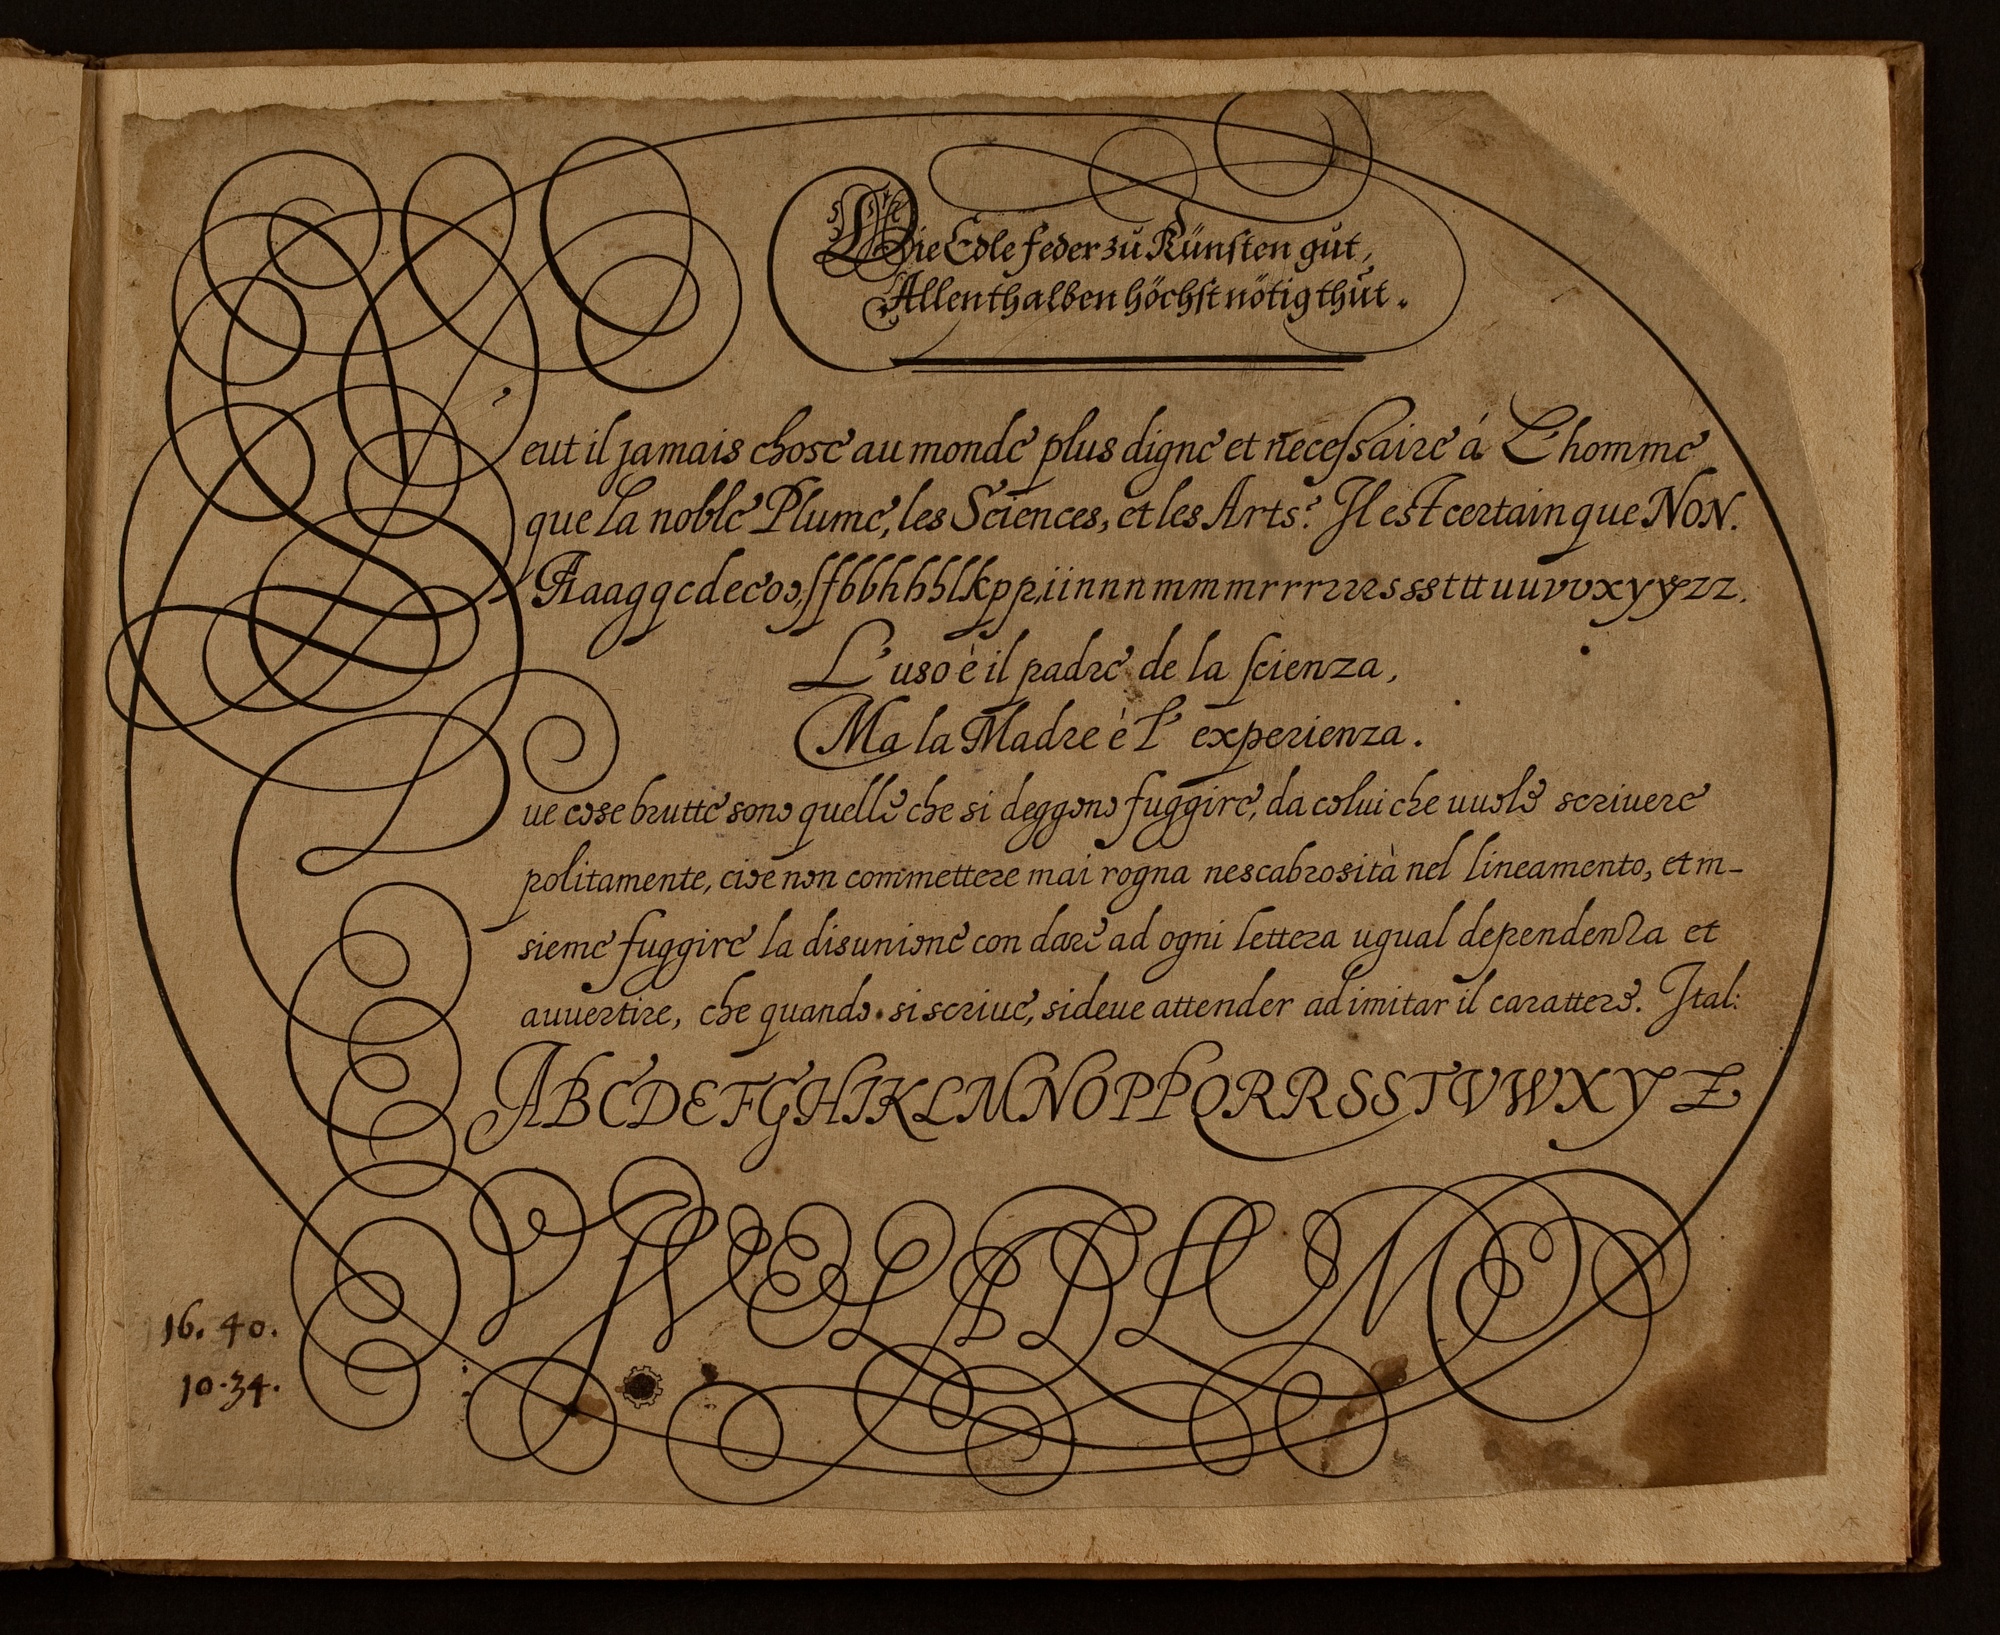 Die Edle feder zu Künsten gut,
Allenthalben höchst nötig thut.
eut il jamais chose au monde plus digne et necessaire á L'homme
que la noble Plume, les Sciences, et les Arts? Il est certain que NON.
Aaagqcdecoo,ſfbbhhhlkpp,iinnnmmmrrrrzzsssstttuuvvxyyzz.
L'uso è il padre de la scienza,
Ma la Madre è l' experienza.
ue cose brutte sono quelle che si deggono fuggire, da colui che uuole scriuere
politamente, cioe non commettere mai rogna ne scabrosità nel lineamento, et in-
sieme fuggire la disunione con dare ad ogni lettera ugual dependenza et
auuertire, che quando si scriue, si deue attender ad imitar il carattere. Ital:
ABCDEFGHIKLMNOPPQRRSSTVWXYZ
16. 40.
10.34.